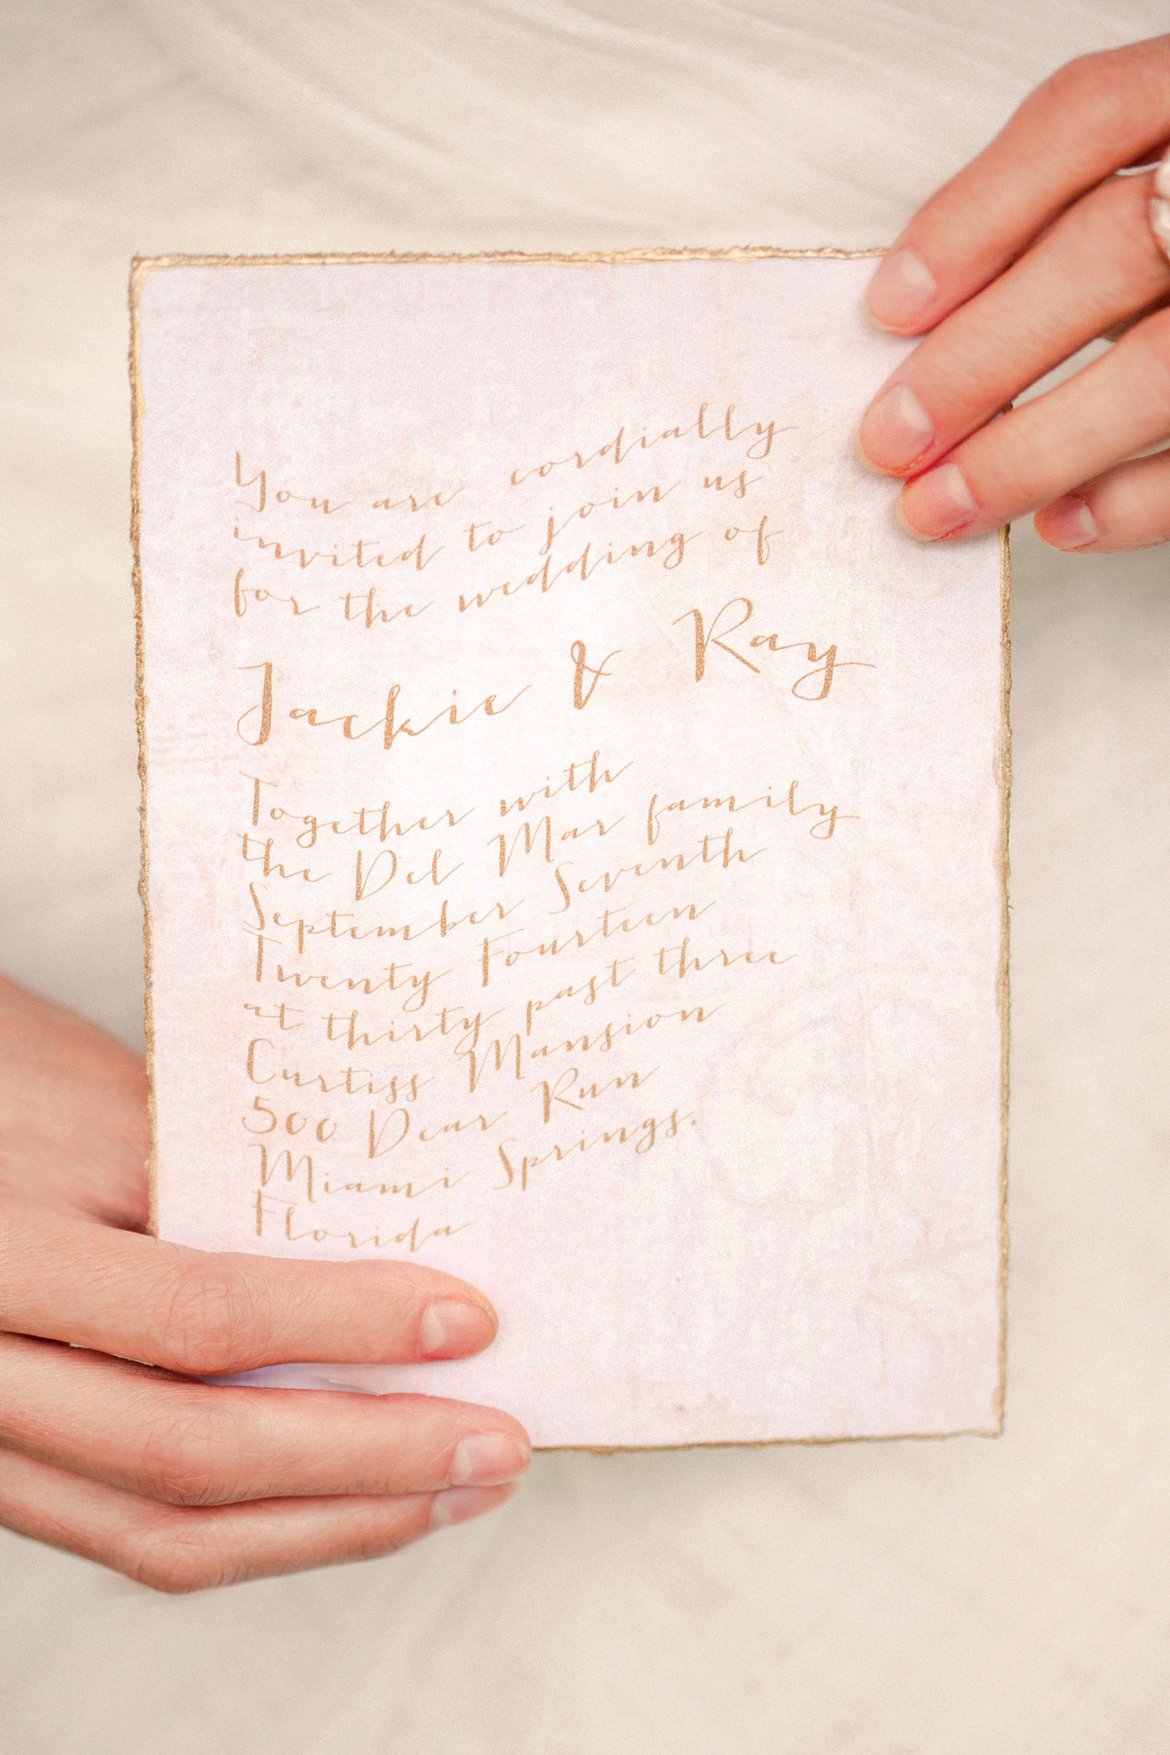 You are cordially
invited to join us
for the wedding of
Jackie & Ray
Together with
the Del Mar family
September Seventh
Twenty Fourteen
at thirty past three
Curtiss Mansion
500 Dear Run
Miami Springs.
Florida